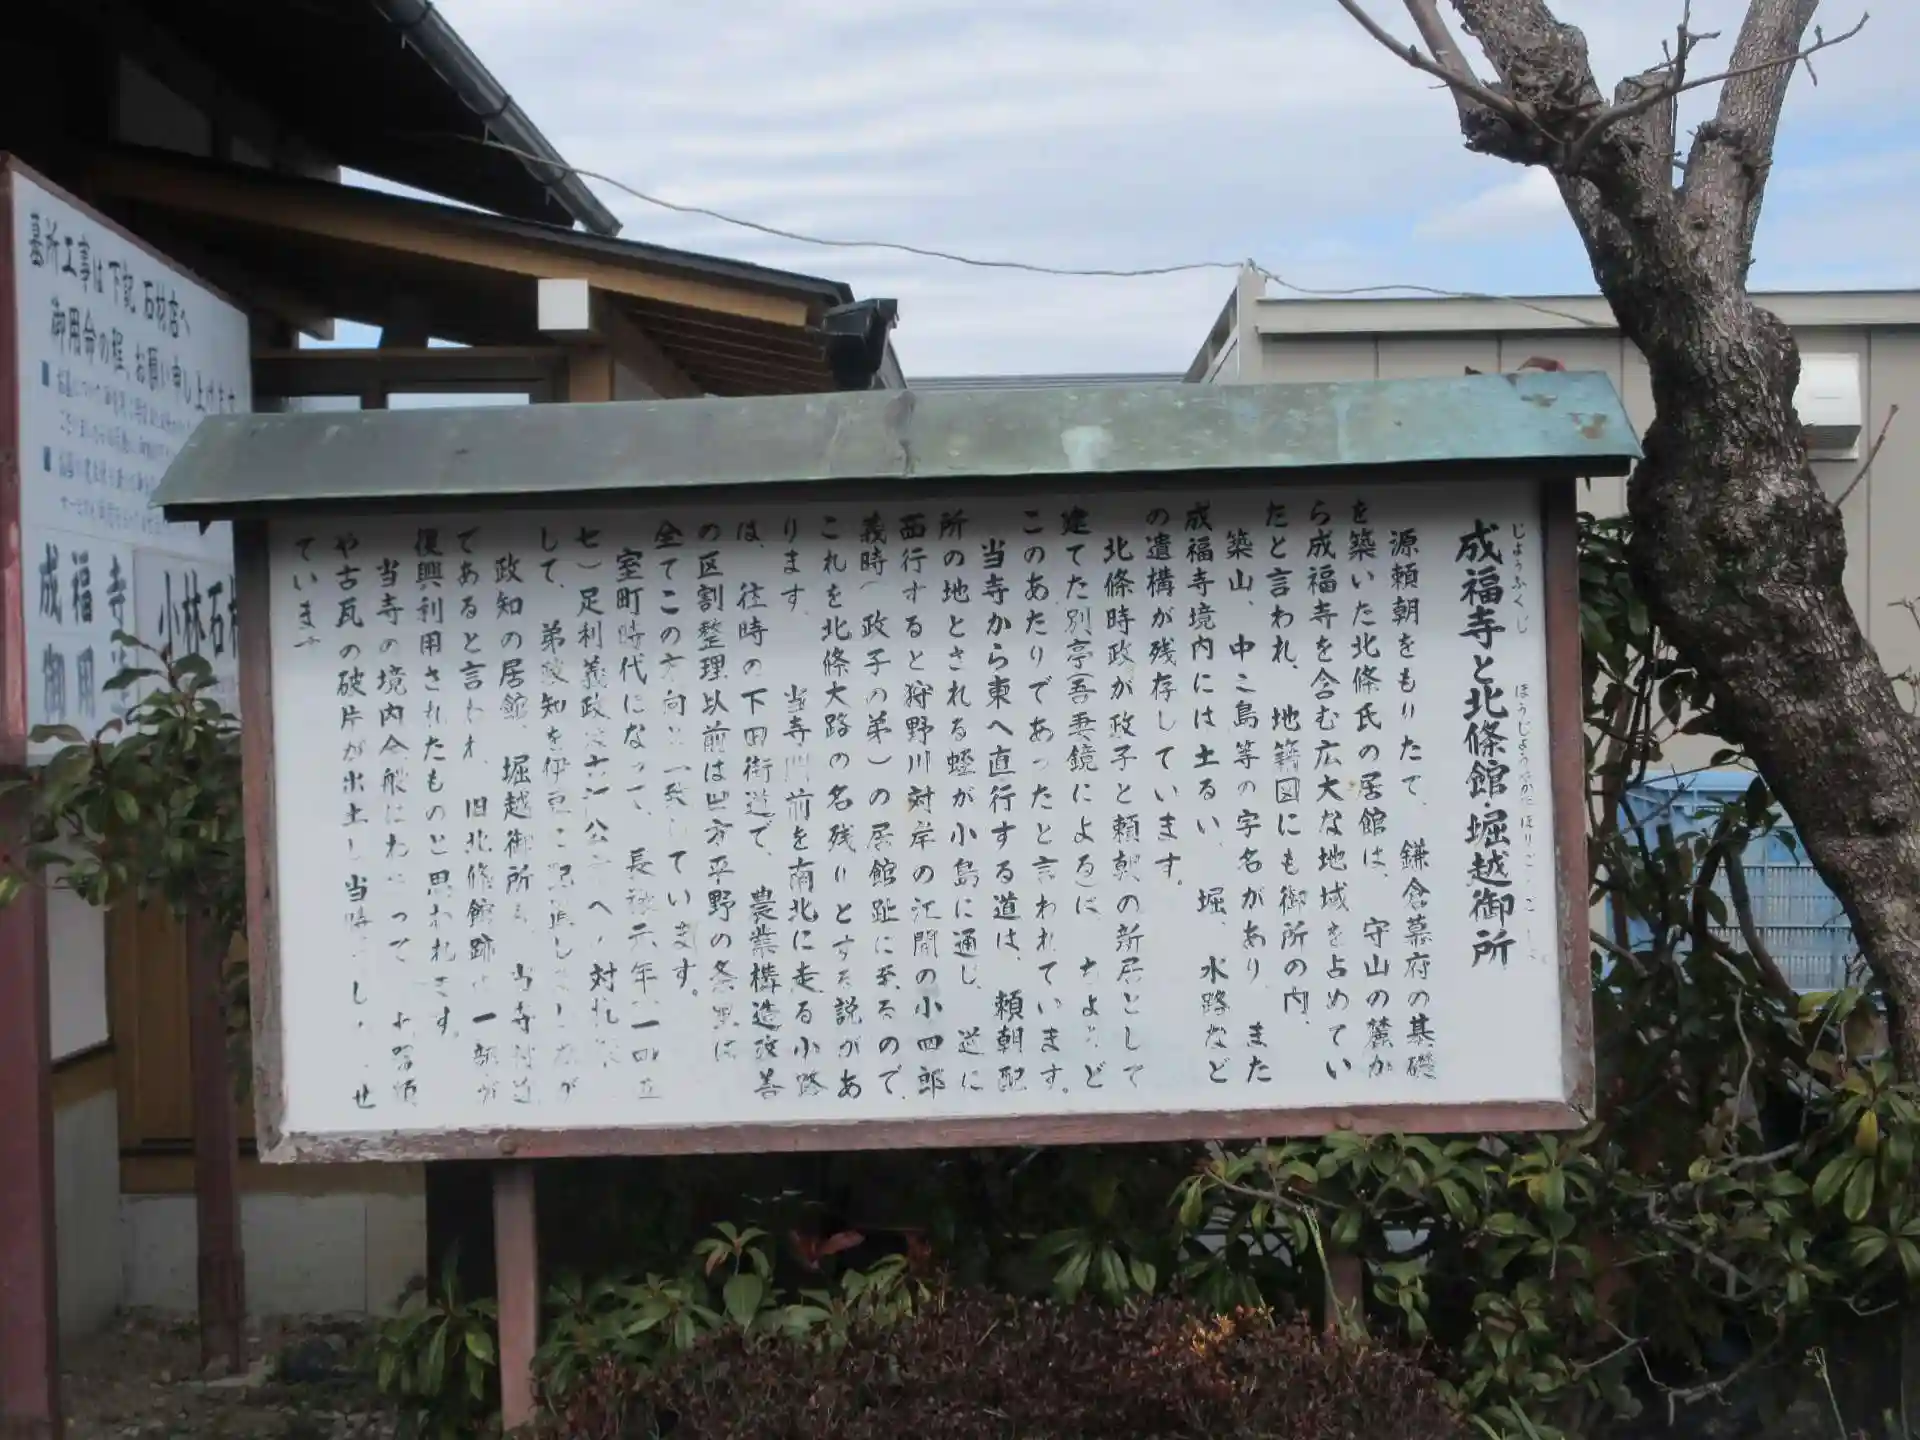 成福寺と北條館・堀越御所
じょうふくじ
源頼朝をもりたて、鎌倉幕府の基礎
を築いた北條氏の居館は、守山の麓か
ら成福寺を含む広大な地域を占めてい
たと言われ、地籍図にも御所の内、
築山、中之島等の字名があり、また
成福寺境内には土るい、堀、水路など
の遺構が残存しています。
北條時政が政子と頼朝の新居として
建てた別亭(吾妻鏡による)は、ちょうど
このあたりであったと言われています。
当寺から東へ直行する道は、頼朝配
所の地とされる蛭が小島に通じ、道に
西行すると狩野川対岸の江間の小四郎
義時(政子の弟)の居館趾に至るので、
これを北條大路の名残りとする説があ
ります。当寺門前を南北に走る小路
は、往時の下田街道で、農業構造改善
の区割整理以前は田方平野の条里は
全てこの方向と一致しています。
室町時代になって、長禄元年(一四五
七)足利義政は古河公方へ、対抗
して、弟政知を伊豆に配
政知の居館、堀越御所も、当寺付近
であると言われ、旧北條館跡の一部が
復興利用されたものと思われます。
当寺の境内全般にわたって
や古瓦の破片が出土し当時
ています
墓所工事は下記石材店へ
御用命の程、お願い申し上げます
成福寺
御用
小林石材